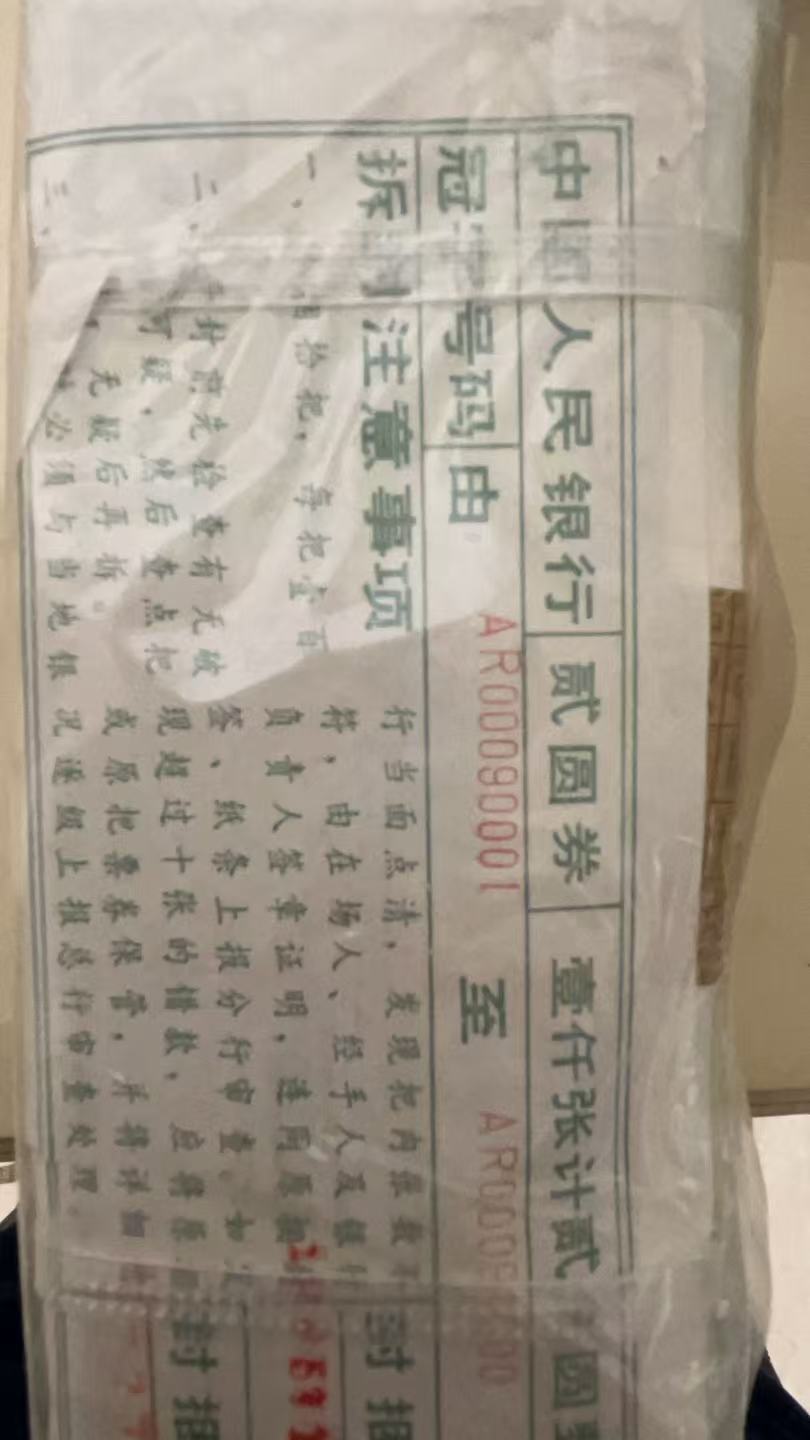 中国人民银行 贰圆券 壹仟张计贰 圆整
冠字号码 由 AR00090001 至 AR000
拆 注意事项
一、 拾把，每把壹百
二、 封前先检查有无破
可疑，然后查点把
无疑后再拆。
三、 必须与当地银
行当面点清，发现把内张数
符，由在场人、经手人及银
负责人签章证明，连同原捆
签、纸条上报分行审查。如
现超过十张的错款，应将原
或原把票券保管，并将详细
况逐级上报总行审查处理。
封捆
封捆